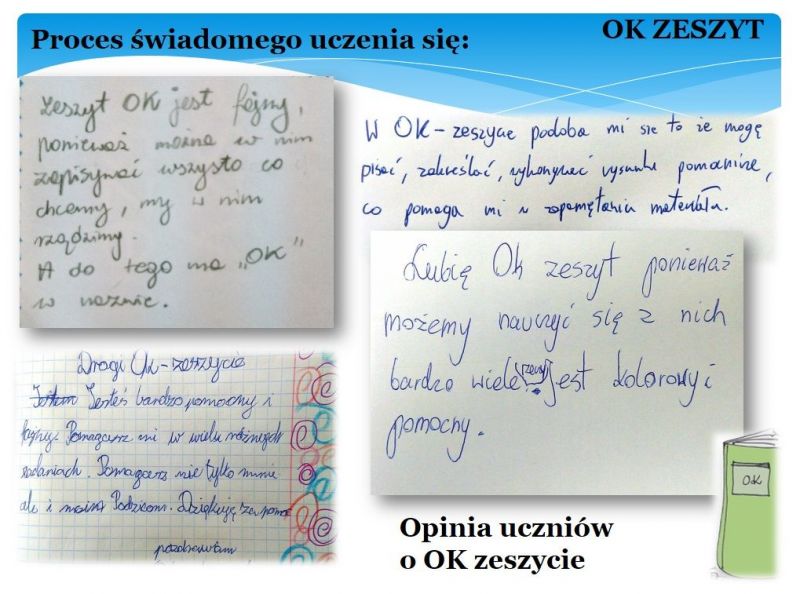 Proces świadomego uczenia się:
OK ZESZYT
Zeszyt OK jest fajny,
ponieważ można w nim
zapisywać wszysto co
chcemy, my w nim
rządzimy.
A do tego ma „OK”
w nazwie.
W OK-zeszycie podoba mi sie to że mogę
pisać, zakreślać, wykonywać rysunki pomocnicze,
co pomaga mi w zapamiętaniu materiału.
Lubię Ok zeszyt ponieważ
możemy nauczyć się z nich
bardzo wiele jest kolorowy i
pomocny.
Drogi Ok-zeszycie
Jesteś bardzo pomocny i
fajny. Pomagasz mi w wielu różnych
zadaniach. Pomagasz nie tylko mnie
ale i moim Rodzicom. Dziękuję za pomoc
pozdrawiam
OK
Opinia uczniów
o OK zeszycie